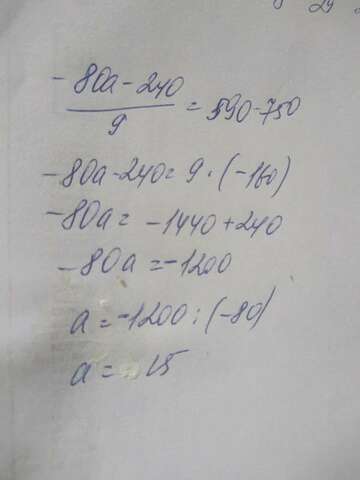 -80a-240
9
= 590-750
-80a-240= 9·(-160)
-80a= -1440+240
-80a=-1200
a=-1200:(-80)
a= 15